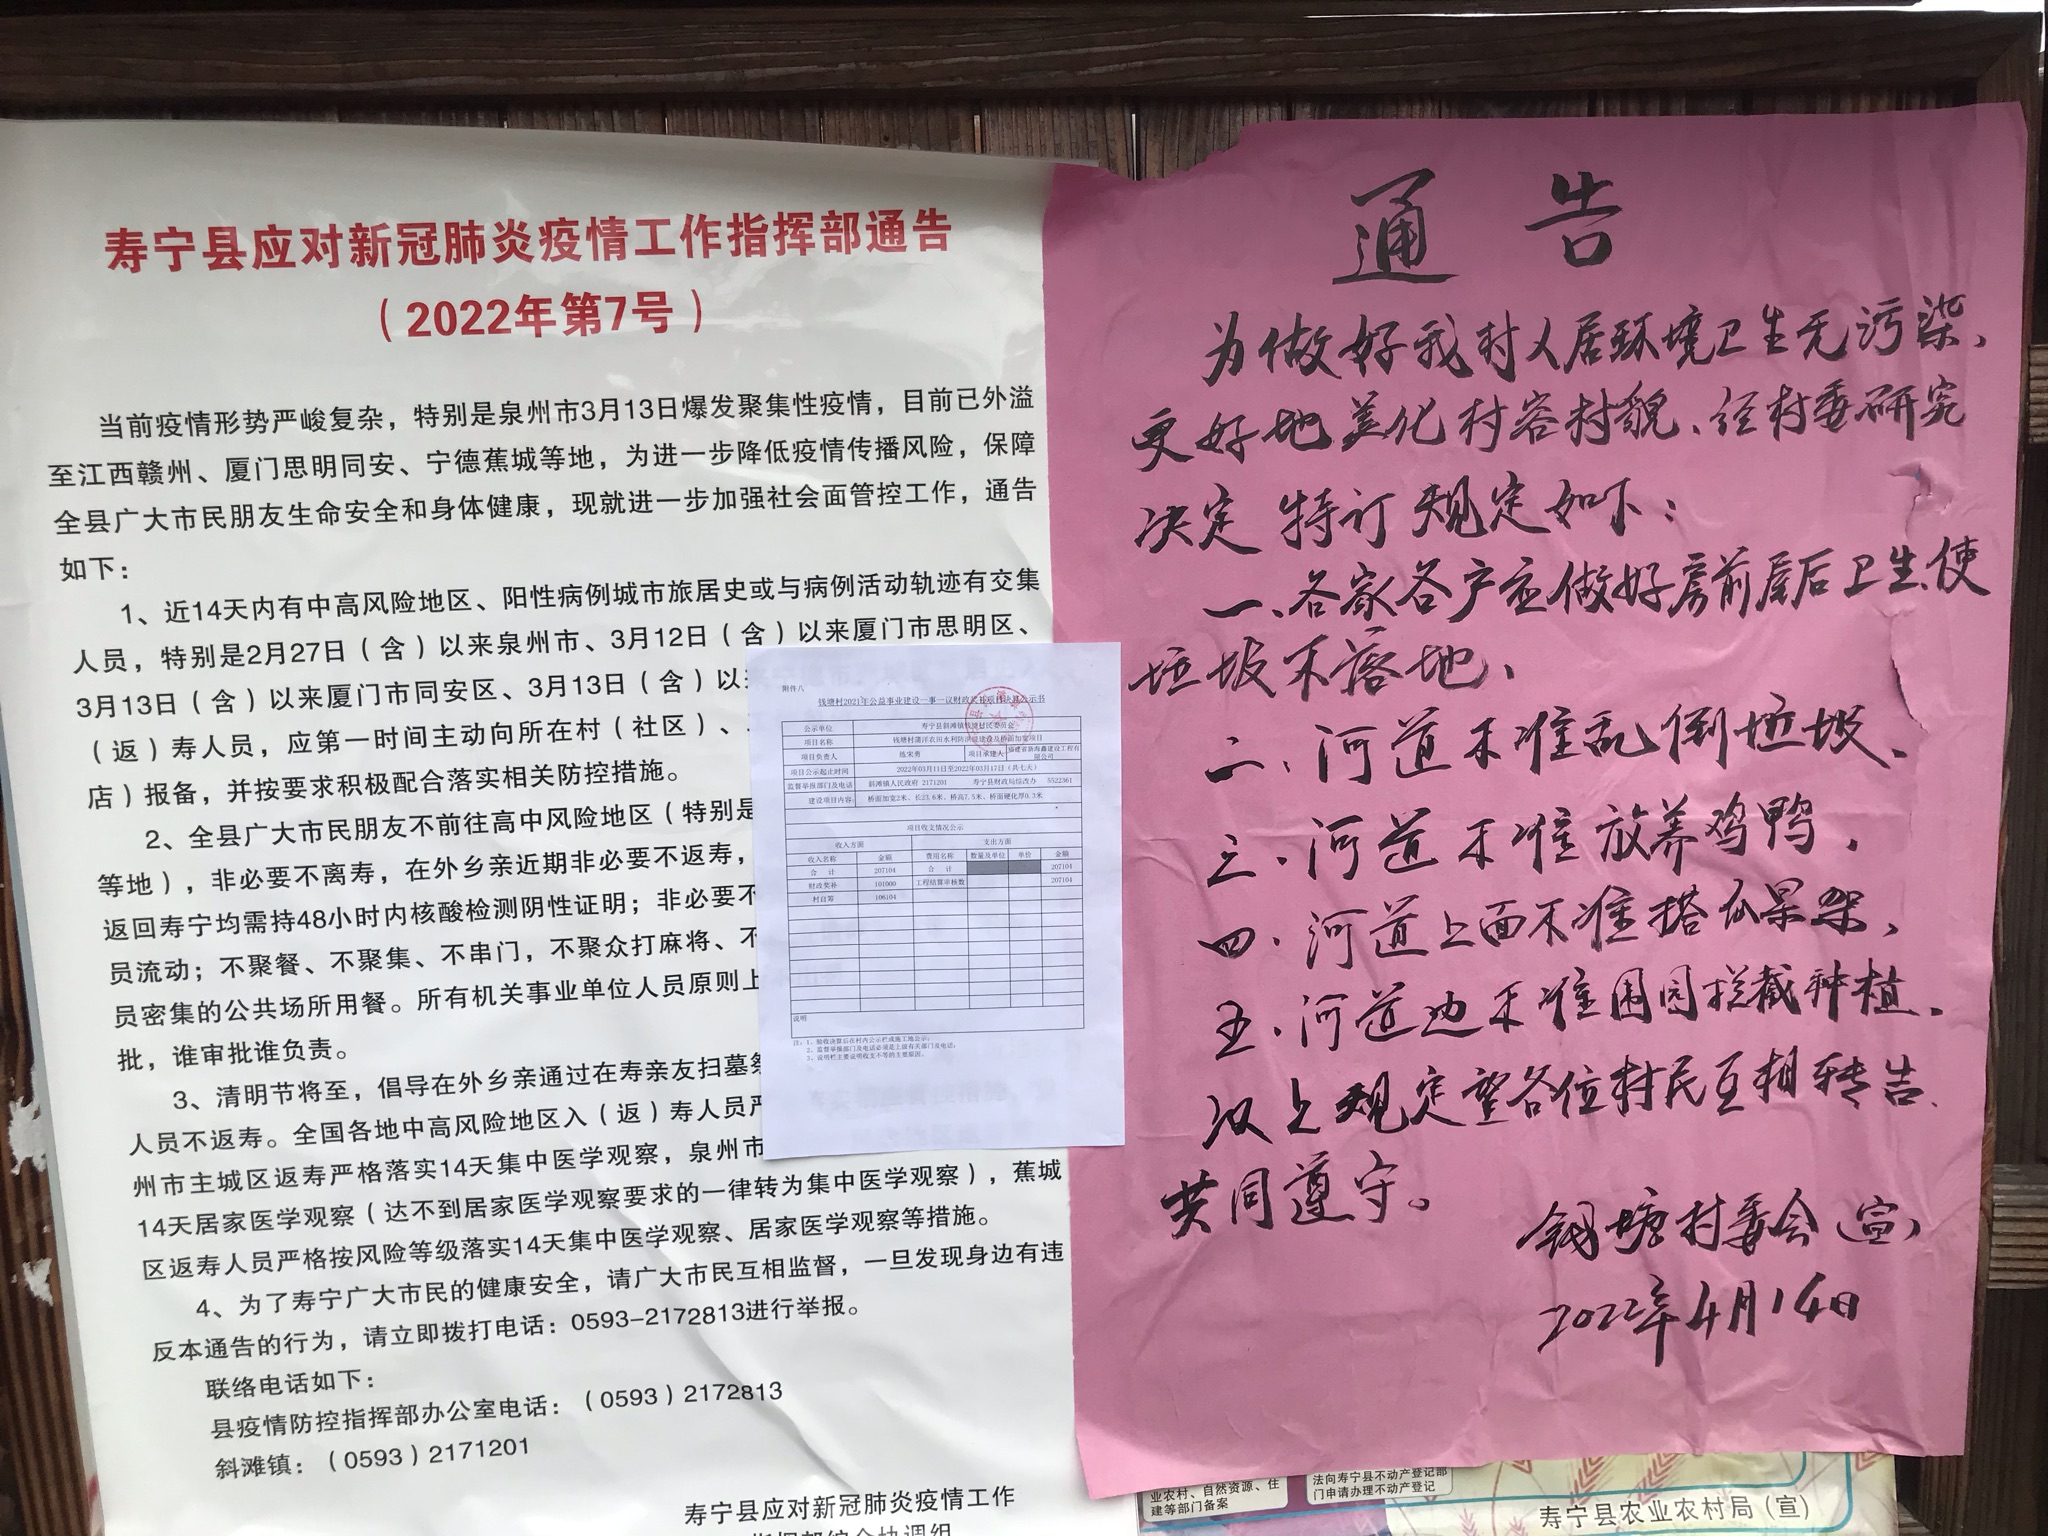 寿宁县应对新冠肺炎疫情工作指挥部通告
（2022年第7号）
当前疫情形势严峻复杂，特别是泉州市3月13日爆发聚集性疫情，目前已外溢
至江西赣州、厦门思明同安、宁德蕉城等地，为进一步降低疫情传播风险，保障
全县广大市民朋友生命安全和身体健康，现就进一步加强社会面管控工作，通告
如下：
1、近14天内有中高风险地区、阳性病例城市旅居史或与病例活动轨迹有交集
人员，特别是2月27日（含）以来泉州市、3月12日（含）以来厦门市思明区、
3月13日（含）以来厦门市同安区、3月13日（含）以
（返）寿人员，应第一时间主动向所在村（社区）、
店）报备，并按要求积极配合落实相关防控措施。
2、全县广大市民朋友不前往高中风险地区（特别是
等地），非必要不离寿，在外乡亲近期非必要不返寿，
返回寿宁均需持48小时内核酸检测阴性证明；非必要不
员流动；不聚餐、不聚集、不串门，不聚众打麻将、不
员密集的公共场所用餐。所有机关事业单位人员原则上
批，谁审批谁负责。
3、清明节将至，倡导在外乡亲通过在寿亲友扫墓祭
人员不返寿。全国各地中高风险地区入（返）寿人员严
州市主城区返寿严格落实14天集中医学观察，泉州市
14天居家医学观察（达不到居家医学观察要求的一律转为集中医学观察），蕉城
区返寿人员严格按风险等级落实14天集中医学观察、居家医学观察等措施。
4、为了寿宁广大市民的健康安全，请广大市民互相监督，一旦发现身边有违
反本通告的行为，请立即拨打电话：0593-2172813进行举报。
联络电话如下：
县疫情防控指挥部办公室电话：（0593）2172813
斜滩镇：（0593）2171201
寿宁县应对新冠肺炎疫情工作
指挥部综合协调组
附件八
钱塘村2021年公益事业建设一事一议财政奖补项目决算公示书
公示单位 寿宁县斜滩镇钱塘村民委员会
项目名称 钱塘村蒲洋农田水利防洪堤建设及桥面加宽项目
项目负责人 练荣勇 项目承建人 福建省新海鑫建设工程有限公司
项目公示起止时间 2022年03月11日至2022年03月17日（共七天）
监督举报部门及电话 斜滩镇人民政府 2171201 寿宁县财政局综改办 5522361
建设项目内容 桥面加宽2米、长23.6米、桥高7.5米、桥面硬化厚0.3米
项目收支情况公示
收入方面 支出方面
收入名称 金额 费用名称 数量及单位 单价 金额
合 计 207104 合 计 207104
财政奖补 101000 工程结算审核数 207104
村自筹 106104
说明
注：1、验收决算后在村内公示栏或施工地公示；
2、监督举报部门及电话必须是上级有关部门及电话；
3、说明栏主要说明收支不等的主要原因。
通 告
为做好我村人居环境卫生无污染、
更好地美化村容村貌、经村委研究
决定 特订规定如下：
一、各家各户应做好房前屋后卫生、使
垃圾不落地、
二、河道不准乱倒垃圾、
三、河道不准放养鸡鸭，
四、河道上面不准搭瓜果架，
五、河道边不准围园拦截种植、
以上规定望各位村民互相转告、
共同遵守。
钱塘村委会（宣）
2022年4月14日
业农村、自然资源、住
建等部门备案
法向寿宁县不动产登记部
门申请办理不动产登记
寿宁县农业农村局（宣）